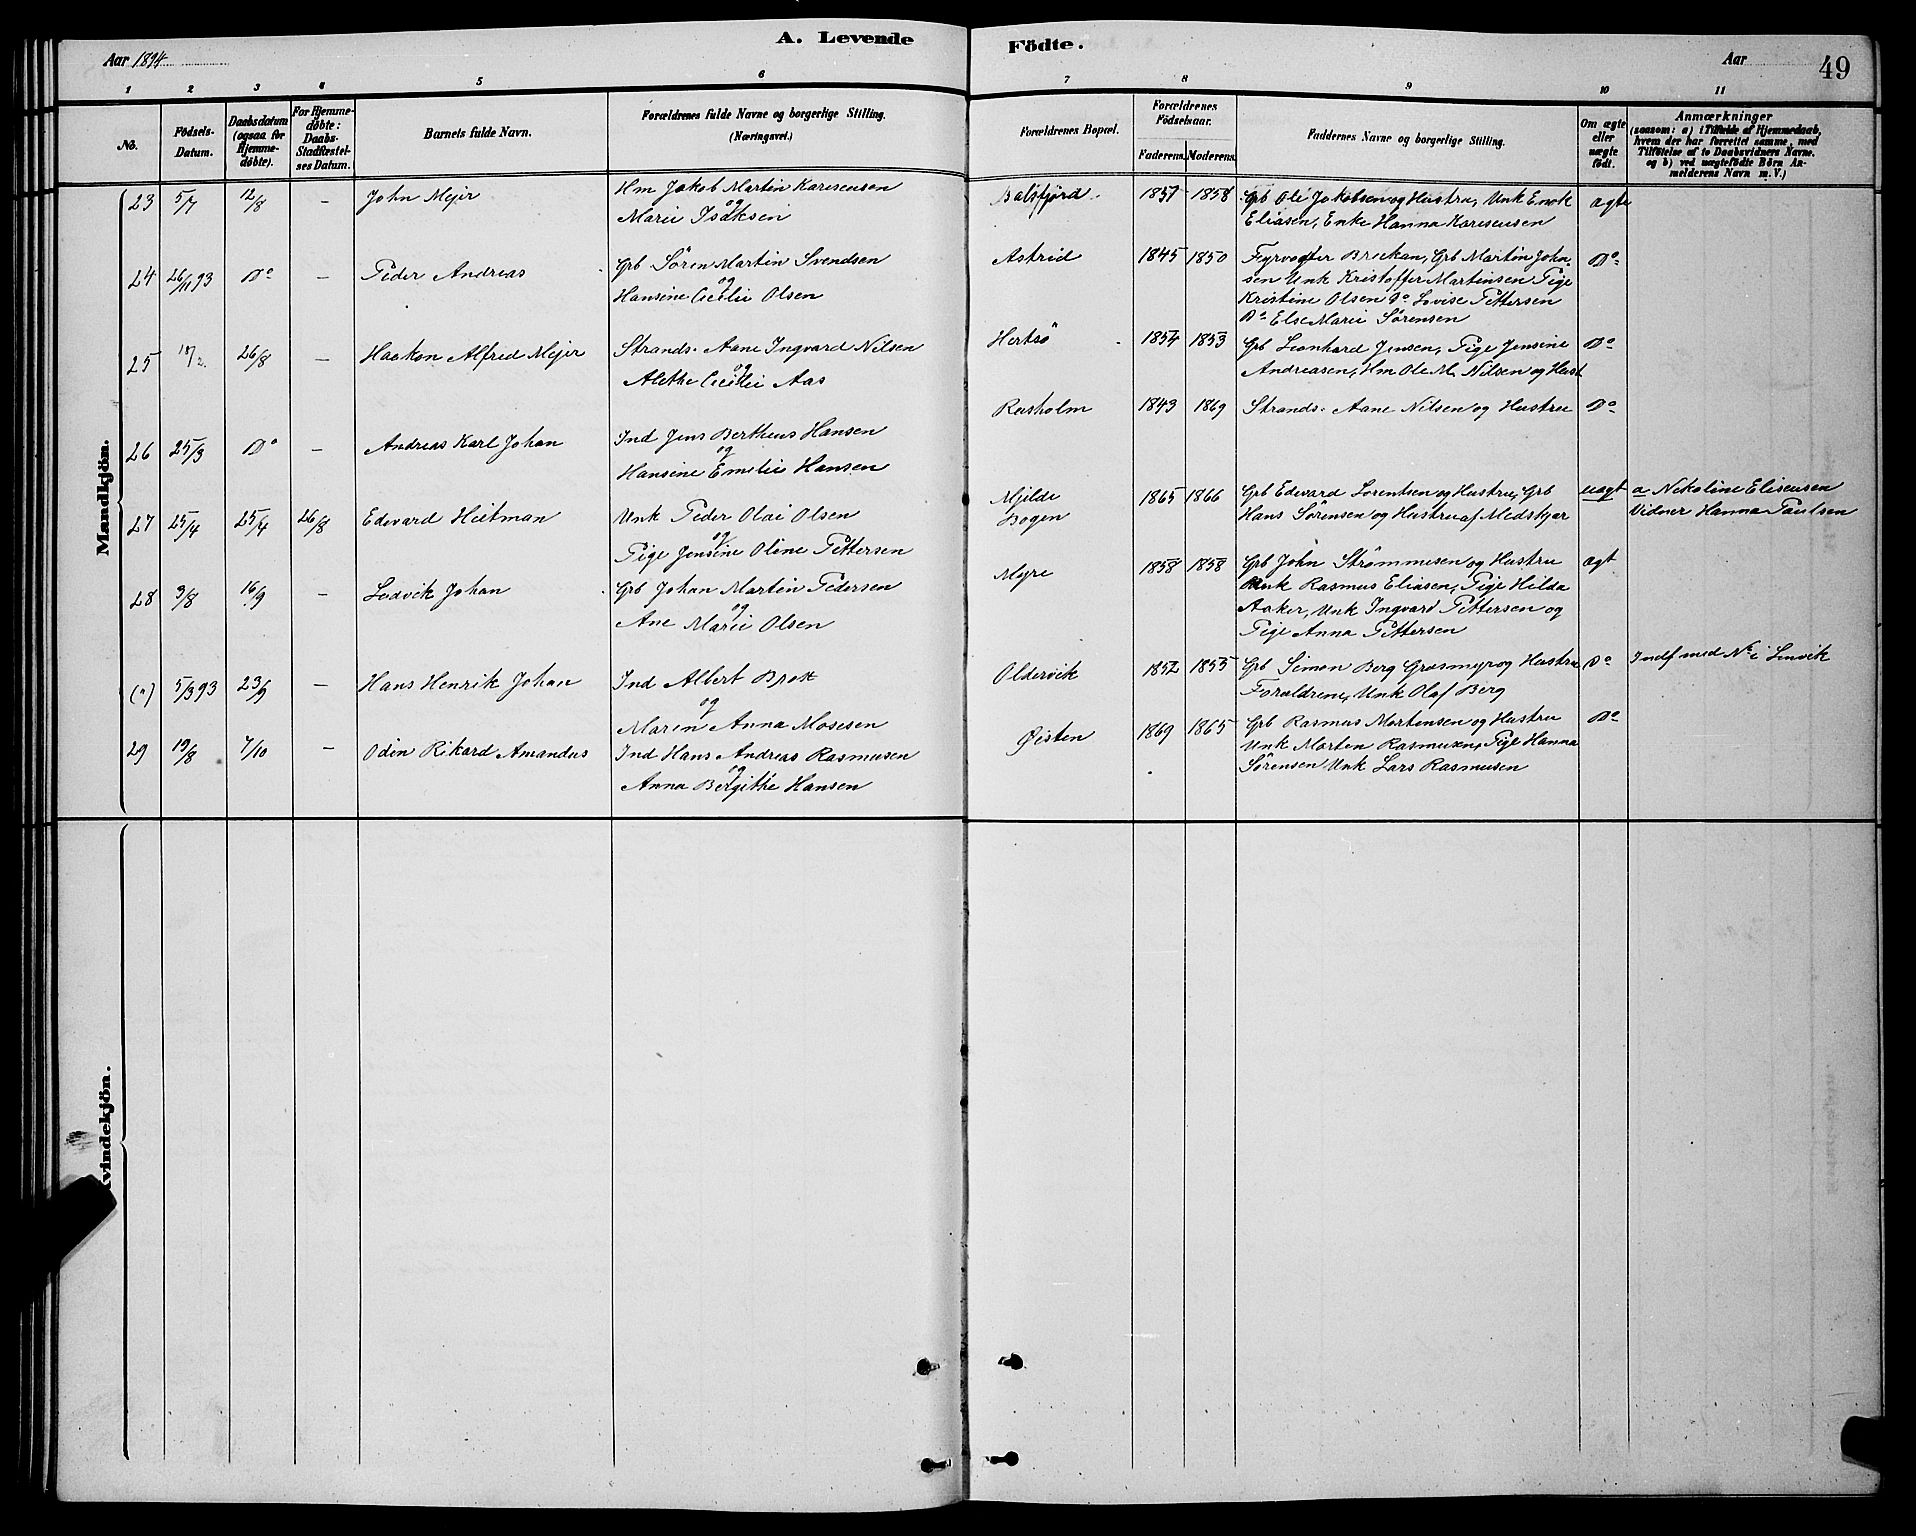 A. Levende
Födte.
Aar 1894
Aar
49
1 2 3 4 5 6 7 8 9 10 11
No.
Födsels-Datum.
Daabsdatum (ogsaa for Hjemme-döbte).
For Hjemme-döbte: Daabs Stadfæstel-ses Datum.
Barnets fulde Navn.
Forældrenes fulde Navne og borgerlige Stilling.
(Næringsvei.)
Forældrenes Bopæl.
Forældrenes Födselsaar.
Faderens. Moderens.
Faddernes Navne og borgerlige Stilling.
Om ægte eller uægte födt.
Anmærkninger
(saasom: a) i Tilfælde af Hjemmedaab,
hvem der har forrettet samme, med
Tilföielse af to Daabsvidners Navne,
og b) ved uægtefödte Börn An-
melderens Navn m. V.)
Mandkjön.
23 5/7 12/8 – John Mejer
Hm Jakob Martin Karesensen
og
Marie Isaksen
Balsfjord 1857 1858
Grb Ole Jakobsen og Hustru, Unk Enok
Eliasen, Enke Hanna Karesensen
ægte
24 26/11 93 Do – Peder Andreas
Grb Sören Martin Svendsen
og
Hansine Cecilie Olsen
Astrid 1845 1850
Fyrvogter Breckan, Grb Martin John-
sen Unk Kristoffer Martinsen Pige
Kristine Olsen Do Lovise Pettersen
Do Else Marie Sörensen
Do
25 18/2 26/8 – Haakon Alfred Mejer
Strands. Aane Ingvard Nilsen
og
Alethe Cecilie Aas
Hertsö 1854 1853
Grb Leonhard Jensen, Pige Jensine
Andreasen, Hm Ole M. Nilsen og Hust
Do
26 25/3 Do – Andreas Karl Johan
Ind Jens Bertheus Hansen
og
Hansine Emelie Hansen
Rusholm 1843 1869
Strands. Aane Nilsen og Hustru
Do
27 25/4 25/4 26/8 Edevard Heitman
Unk Peder Olai Olsen
og
Pige Jensine Oline Pettersen
Mjelde
Bogen
1865 1866
Grb Edevard Lorentsen og Hustru, Grb
Hans Sörensen og Hustru af Medskjer
uægt
a Nikoline Eliseusen
Vidner Hanna Paulsen
28 3/8 16/9 – Lodvik Johan
Grb Johan Martin Pedersen
og
Ane Marie Olsen
Myre 1858 1858
Grb John Strömmesen og Hustru
Unk Rasmus Eliasen, Pige Hilda
Aaker, Unk Ingvard Pettersen og
Pige Anna Pettersen
ægt
(") 5/3 93 23/9 – Hans Henrik Johan
Ind Albert Brox
og
Maren Anna Mosesen
Oldervik 1852 1855
Grb Simon Berg Grasmyr og Hustru
Forældrene, Unk Olaf Berg
Do
Indf med No i Lenvik
29 19/8 7/10 – Odin Rikard Amandus
Ind Hans Andreas Rasmusen
og
Anna Bergithe Hansen
Øisten 1869 1865
Grb Rasmus Mortensen og Hustru
Unk Morten Rasmusen, Pige Hanna
Sörensen Unk Lars Rasmusen
Do
Kvindekjön.